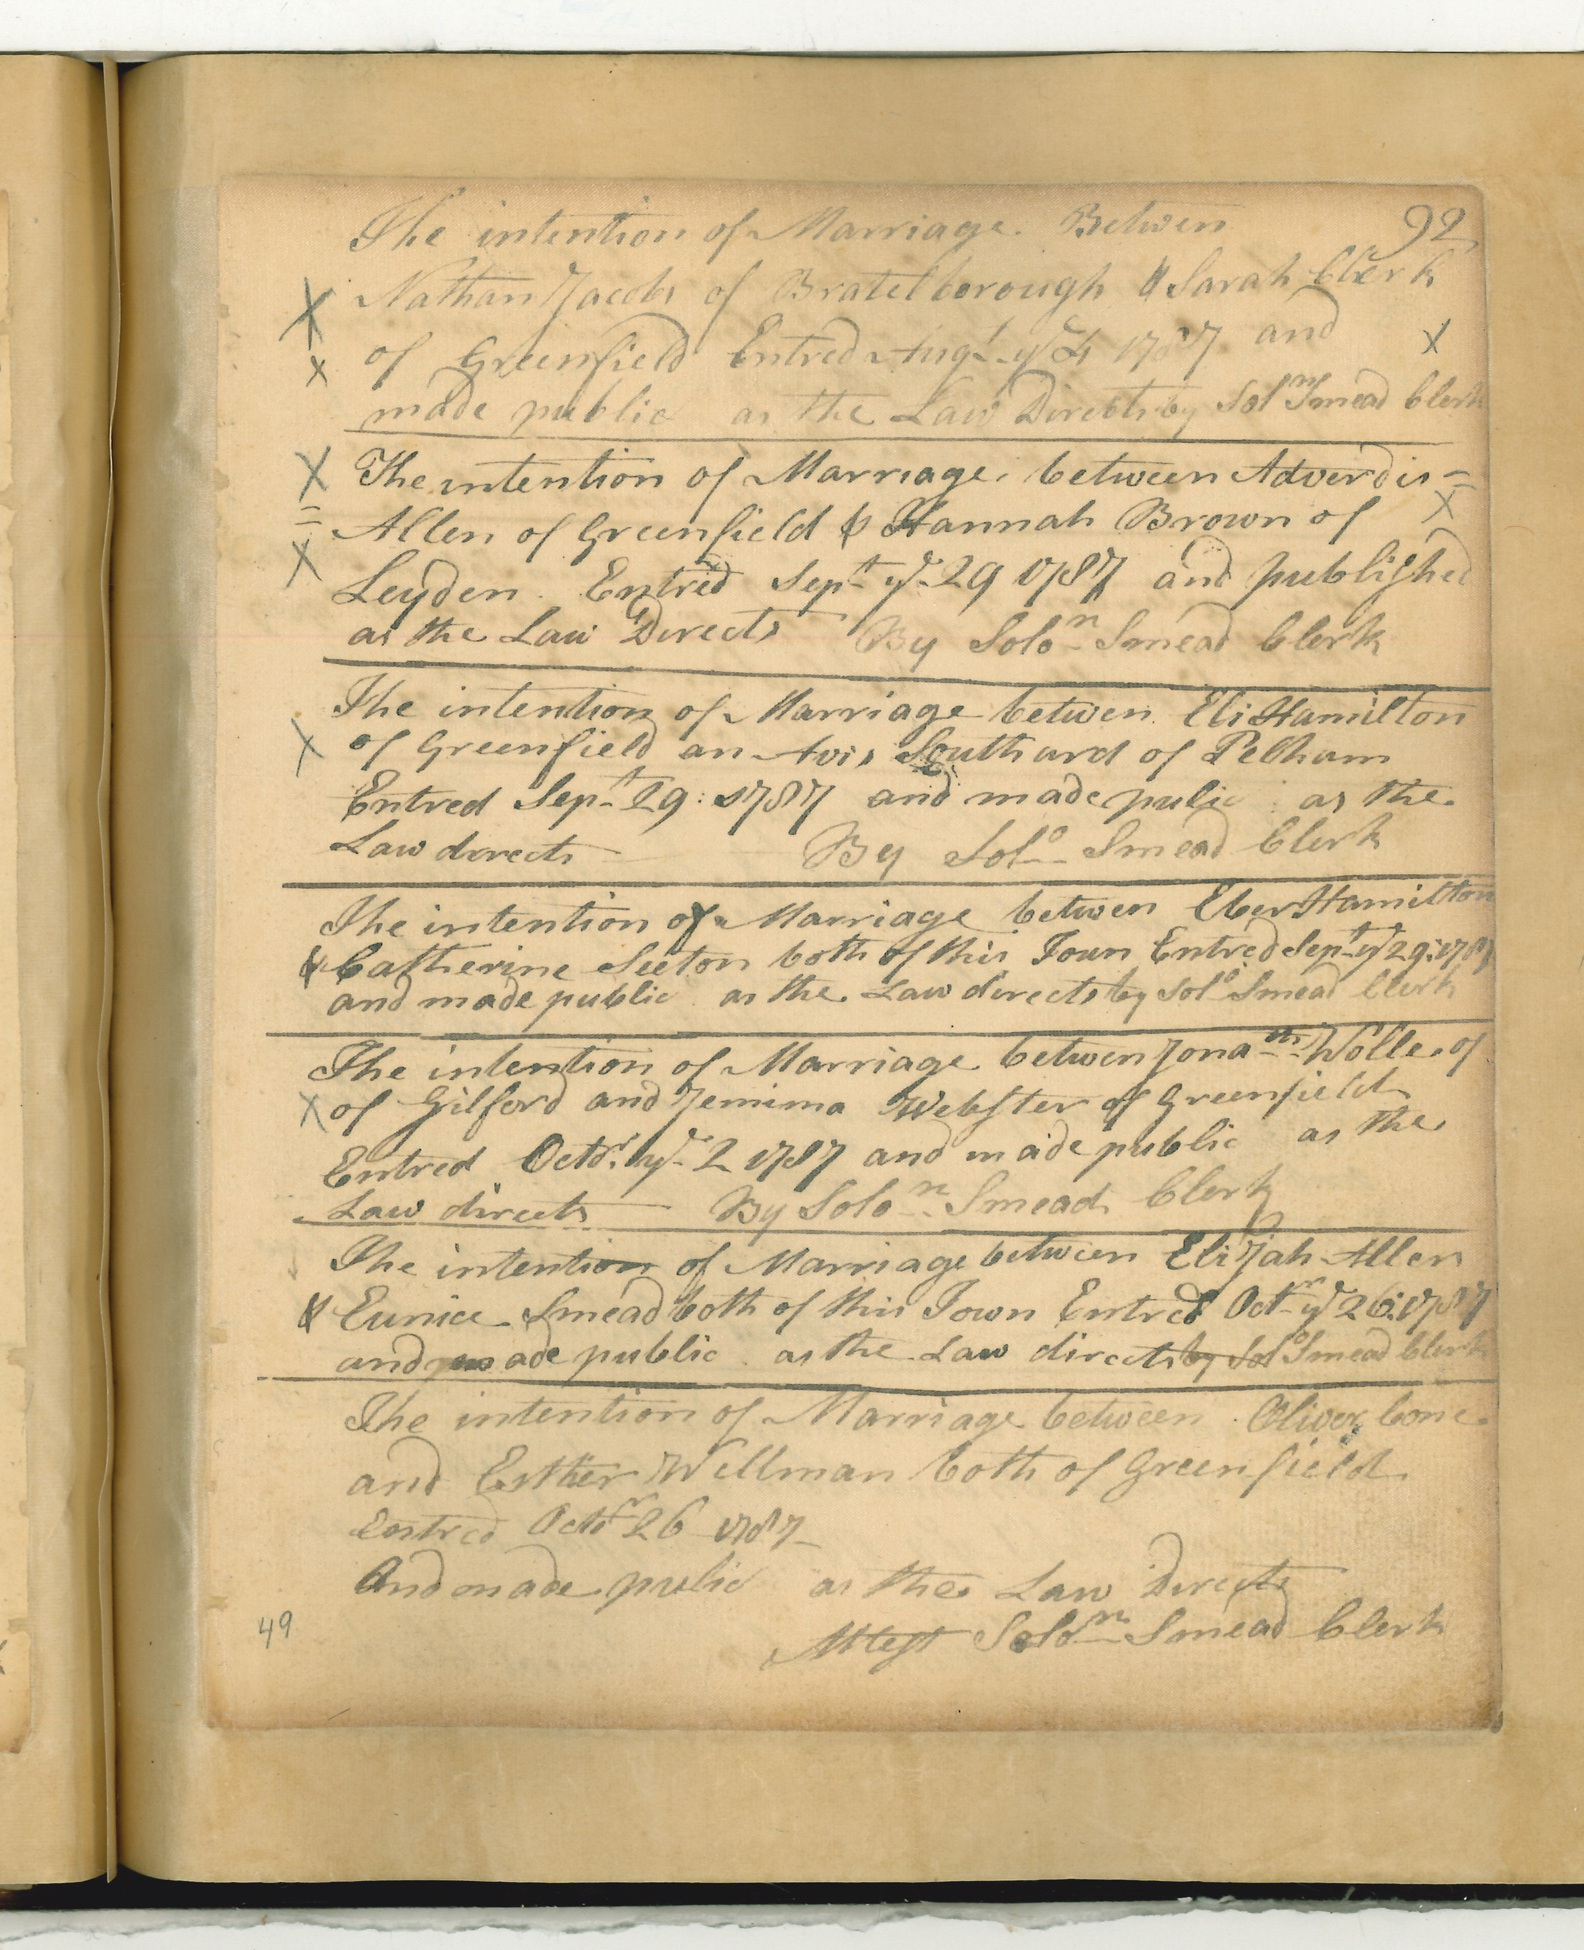 92
The intention of Marriage. Betwen
X Nathan Jacobs of Bratelborough & Sarah Clerk
X of Greenfield Entred Augt ye 4 1787 and X
made public as the Law Directs by Soln Smead Clerk
X The intention of Marriage. between Adverdis =
= Allen of Greenfield & Hannah Brown of X
X Leyden. Entred Sept ye 29 1787 and published
as the Law Directs By Solon Smead Clerk
The intention of Marriage betwen Eli Hamilton
X of Greenfield an Avis Southward of Pelham
Entred Sept 29: 1787 and made pulic as the
Law directs By Solo Smead Clerk
The intention of Marriage betwen Eber Hamilton
& Catherine Seeton both of this Town Entred Sept ye 29: 1787
and made public as the Law directs by Solo Smead Clerk
The intention of Marriage betwen Jonath of
X of Gilford and Jemima Webster of Greenfield
Entred Octr. ye 2 1787 and made public as the
Law directs By Solon Smead Clerk
The intention of Marriage between Elijah Allen
& Eunice Smead both of this Town Entred Octr ye 26: 1787
and made public as the Law directs by Solo Smead Clerk
The intention of Marriage between Oliver Cone
and Esther Wellman both of Greenfield
Entred Octor 26 1787
And made pulic as the Law Directs
49
Attest Solomn Smead Clerk